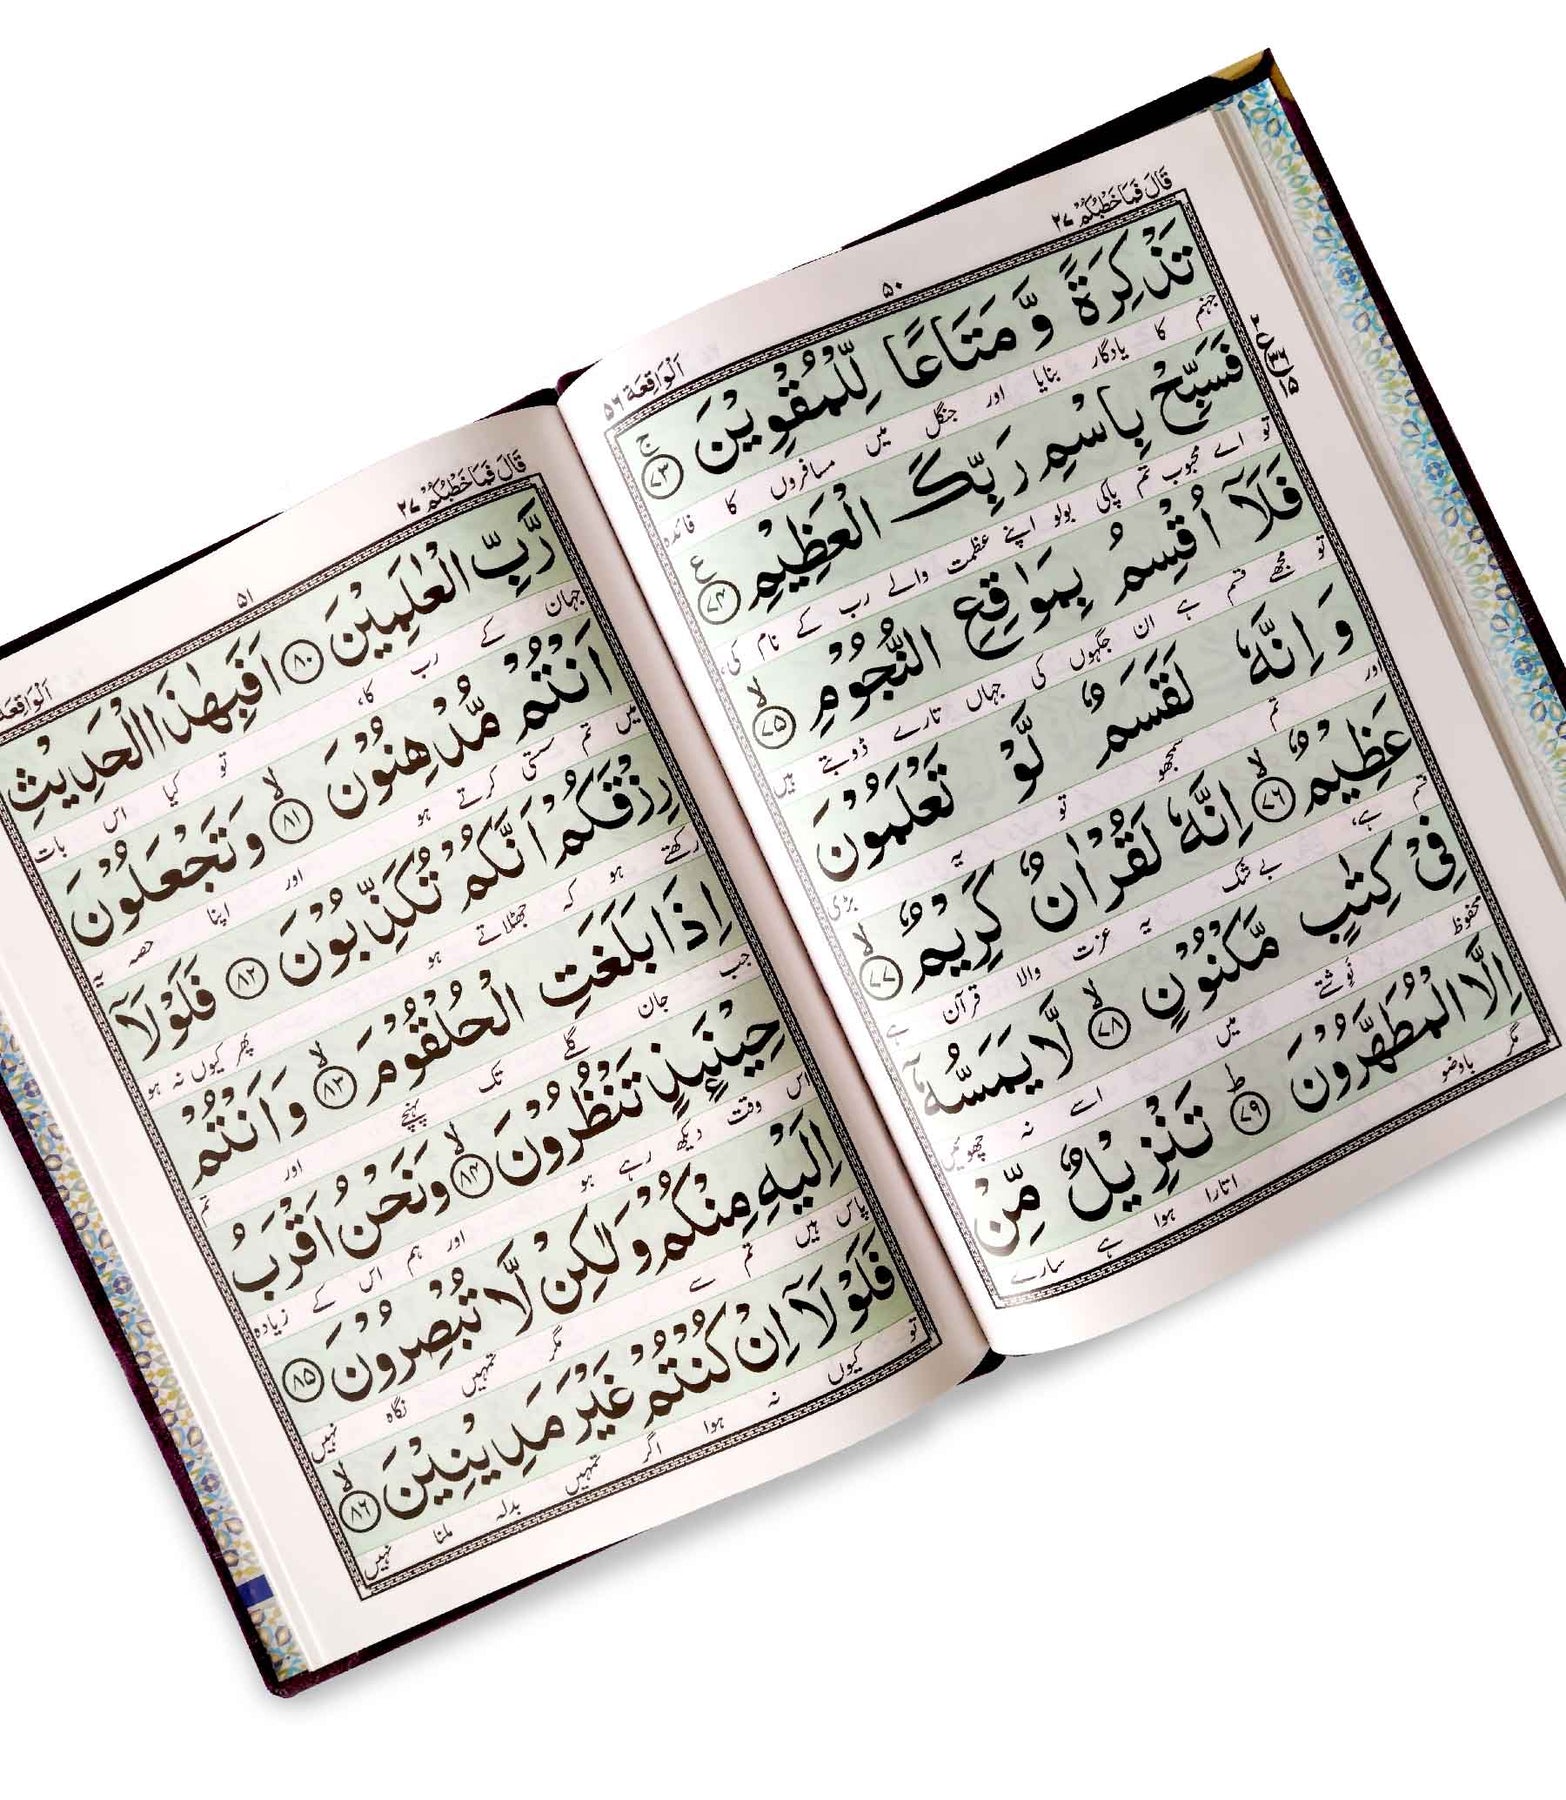 قَالَ فَمَا خَطْبُكُمْ ۲۷
۵۰
اَلْوَاقِعَة ۵۶
تَذْكِرَةً وَّ مَتَاعًا لِّلْمُقْوِيْنَ ﴿۷۳﴾ ۚ
جہنم کا یادگار بنایا اور جنگل میں مسافروں کا فائدہ
فَسَبِّحْ بِاسْمِ رَبِّكَ الْعَظِيْمِ ﴿۷۴﴾
تو اے محبوب تم پاکی بولو اپنے عظمت والے رب کے نام کی،
فَلَاۤ اُقْسِمُ بِمَوٰقِعِ النُّجُوْمِ ﴿۷۵﴾ ۙ
تو مجھے قسم ہے ان جگہوں کی جہاں تارے ڈوبتے ہیں
وَ اِنَّهٗ لَقَسَمٌ لَّوْ تَعْلَمُوْنَ
اور تم سمجھو تو یہ بڑی
عَظِيْمٌ ﴿۷۶﴾ ۙ اِنَّهٗ لَقُرْاٰنٌ كَرِيْمٌ ﴿۷۷﴾ ۙ
قسم ہے، بے شک یہ عزت والا قرآن ہے
فِيْ كِتٰبٍ مَّكْنُوْنٍ ﴿۷۸﴾ ۙ لَّا يَمَسُّهٗۤ
محفوظ نوشتے میں اسے نہ چھوئیں
اِلَّا الْمُطَهَّرُوْنَ ﴿۷۹﴾ ؕ تَنْزِيْلٌ مِّنْ
مگر باوضو اتارا ہوا ہے سارے
قَالَ فَمَا خَطْبُكُمْ ۲۷
۵۱
اَلْوَاقِعَة
رَّبِّ الْعٰلَمِيْنَ ﴿۸۰﴾ اَفَبِهٰذَا الْحَدِيْثِ
جہان کے رب کا، تو کیا اس بات
اَنْتُمْ مُّدْهِنُوْنَ ﴿۸۱﴾ ۙ وَ تَجْعَلُوْنَ
میں تم سستی کرتے ہو اور اپنا حصہ یہ
رِزْقَكُمْ اَنَّكُمْ تُكَذِّبُوْنَ ﴿۸۲﴾ فَلَوْلَاۤ
رکھتے ہو کہ جھٹلاتے ہو پھر کیوں نہ ہو
اِذَا بَلَغَتِ الْحُلْقُوْمَ ﴿۸۳﴾ ۙ وَ اَنْتُمْ
جب جان گلے تک پہنچے اور تم
حِيْنَىِٕذٍ تَنْظُرُوْنَ ﴿۸۴﴾ ۙ وَ نَحْنُ اَقْرَبُ
اس وقت دیکھ رہے ہو اور ہم اس کے زیادہ
اِلَيْهِ مِنْكُمْ وَ لٰكِنْ لَّا تُبْصِرُوْنَ ﴿۸۵﴾
پاس ہیں تم سے مگر تمہیں نگاہ نہیں
فَلَوْلَاۤ اِنْ كُنْتُمْ غَيْرَ مَدِيْنِيْنَ ﴿۸۶﴾ ۙ
تو کیوں نہ ہوا اگر تمہیں بدلہ ملنا نہیں